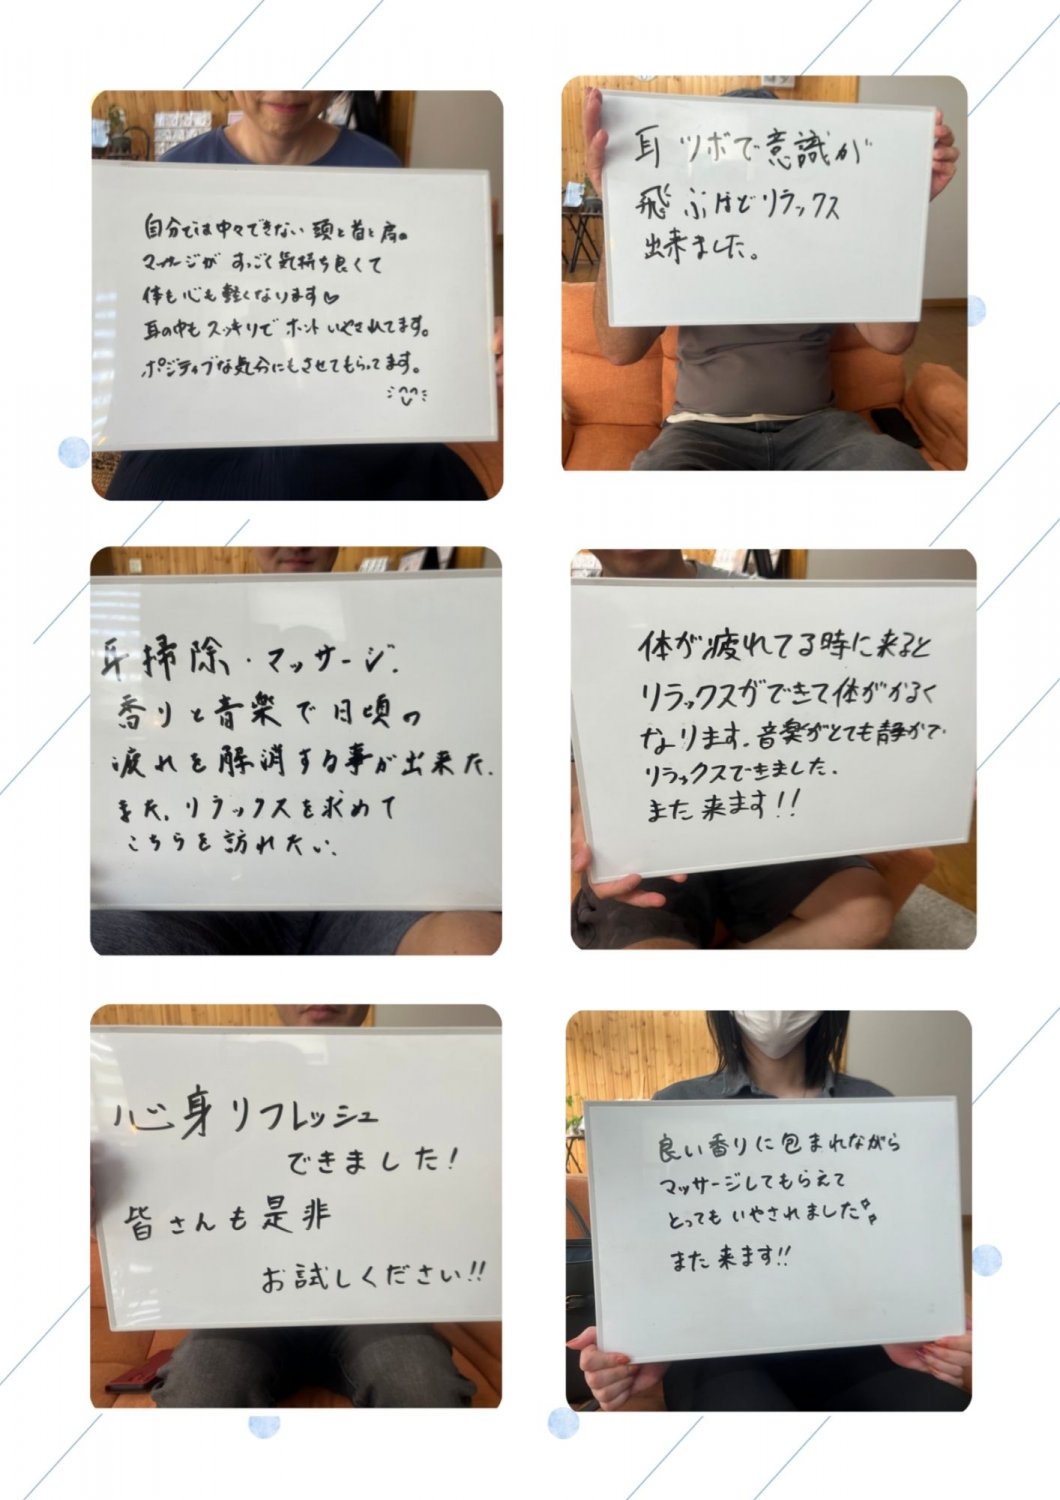 自分では中々できない頭と首と肩の
マッサージが すっごく気持ち良くて
体も心も軽くなります♡
耳の中もスッキリでホントいやされてます。
ポジティブな気分にもさせてもらってます。
耳ツボで意識が
飛ぶほどリラックス
出来ました。
耳掃除・マッサージ、
香りと音楽で日頃の
疲れを解消する事が出来た。
また、リラックスを求めて
こちらを訪れたい。
体が疲れてる時に来ると
リラックスができて体がかるく
なります。音楽がとても静かで
リラックスできました。
また来ます!!
心身リフレッシュ
できました!
皆さんも是非
お試しください!!
良い香りに包まれながら
マッサージしてもらえて
とってもいやされました
また来ます!!